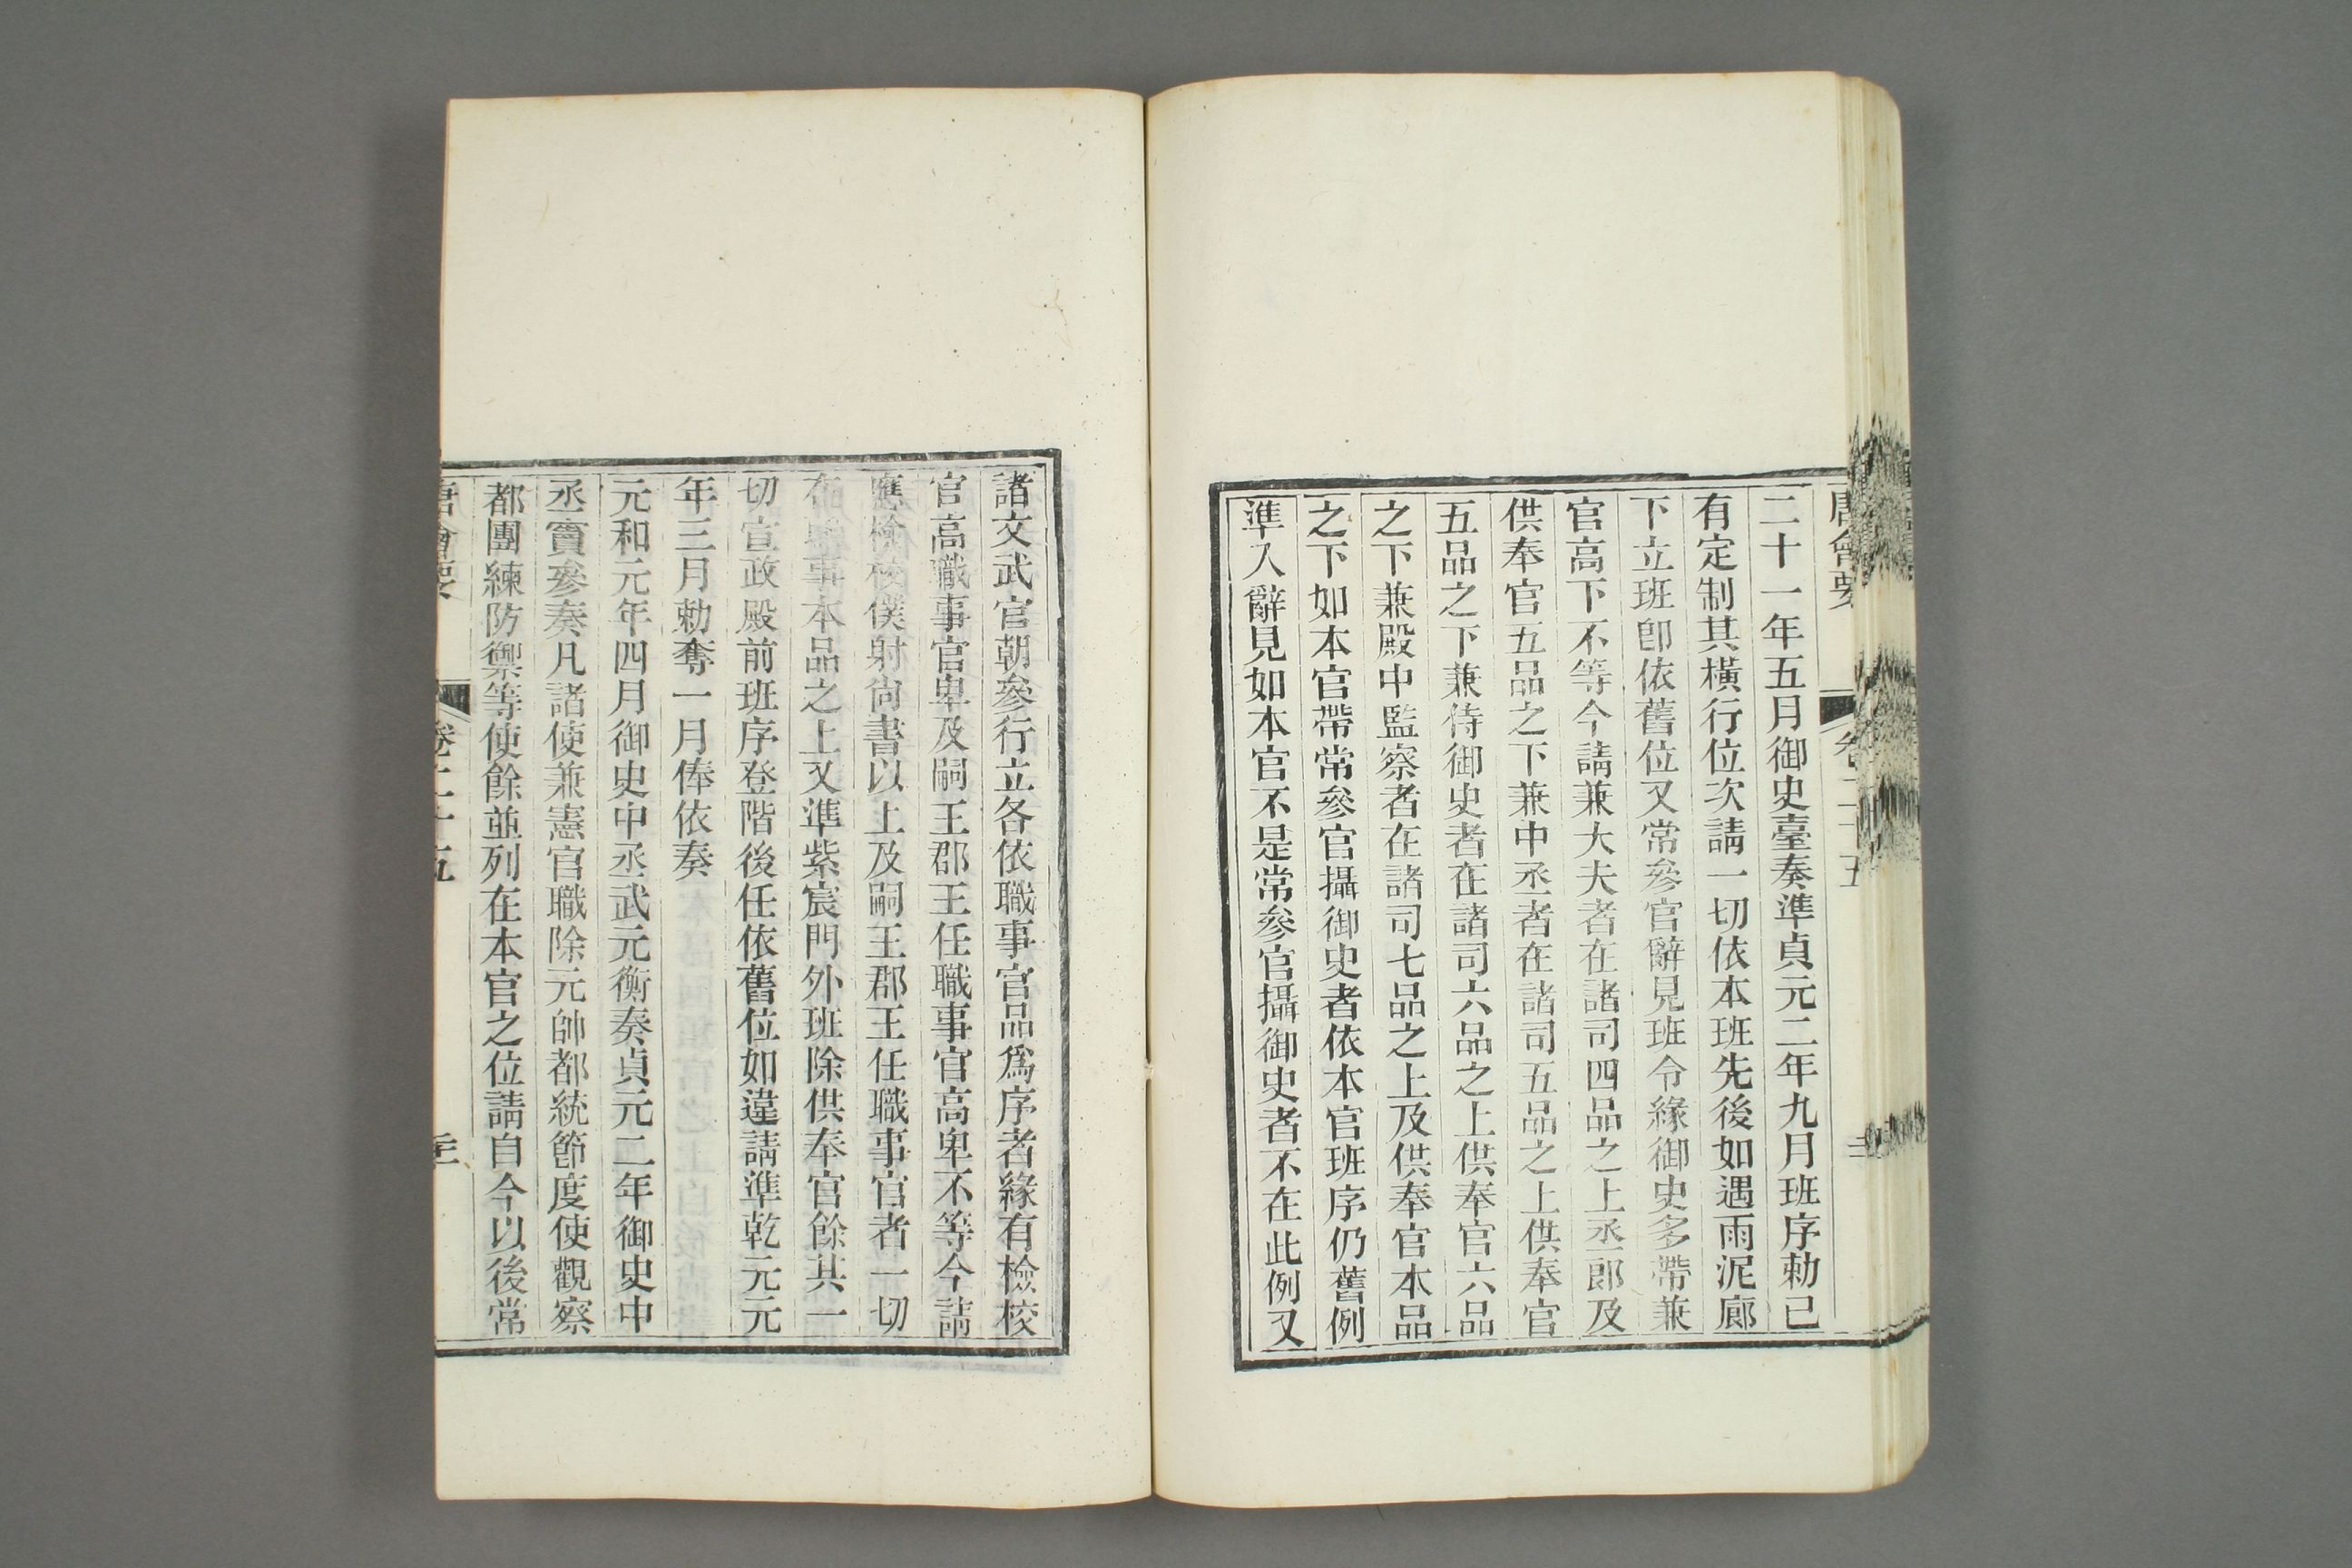 唐會要 卷二十五
二十一年五月御史臺奏準貞元二年九月班序勅已
有定制其橫行位次請一切依本班先後如遇雨泥廊
下立班卽依舊位又常參官辭見班令緣御史多帶兼
官高下不等今請兼大夫者在諸司四品之上丞郎及
供奉官五品之下兼中丞者在諸司五品之上供奉官
五品之下兼侍御史者在諸司六品之上供奉官六品
之下兼殿中監察者在諸司七品之上及供奉官本品
之下如本官帶常參官攝御史者依本官班序仍舊例
準入辭見如本官不是常參官攝御史者不在此例又
諸文武官朝參行立各依職事官品爲序者緣有檢校
官高職事官卑及嗣王郡王任職事官高卑不等今請
應檢校僕射尙書以上及嗣王郡王任職事官者一切
在職事本品之上又準紫宸門外班除供奉官餘其一
切宣政殿前班序登階後任依舊位如違請準乾元元
年三月勅奪一月俸依奏
元和元年四月御史中丞武元衡奏貞元二年御史中
丞竇參奏凡諸使兼憲官職除元帥都統節度使觀察
都團練防禦等使餘並列在本官之位請自今以後常
唐會要 卷二十五